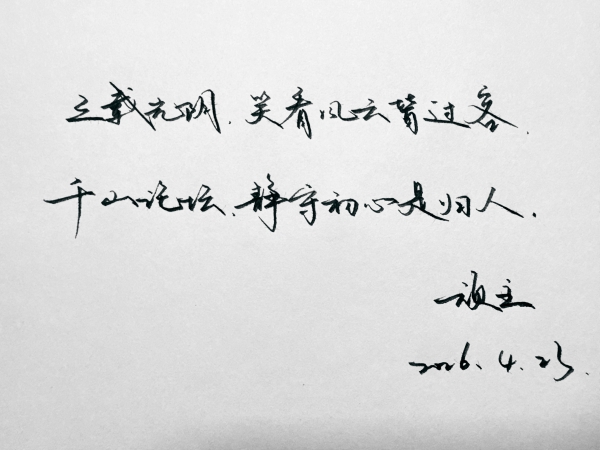 三载光阴,笑看风云皆过客,
千山论坛,静守初心是归人.
顽主
2026.4.23.